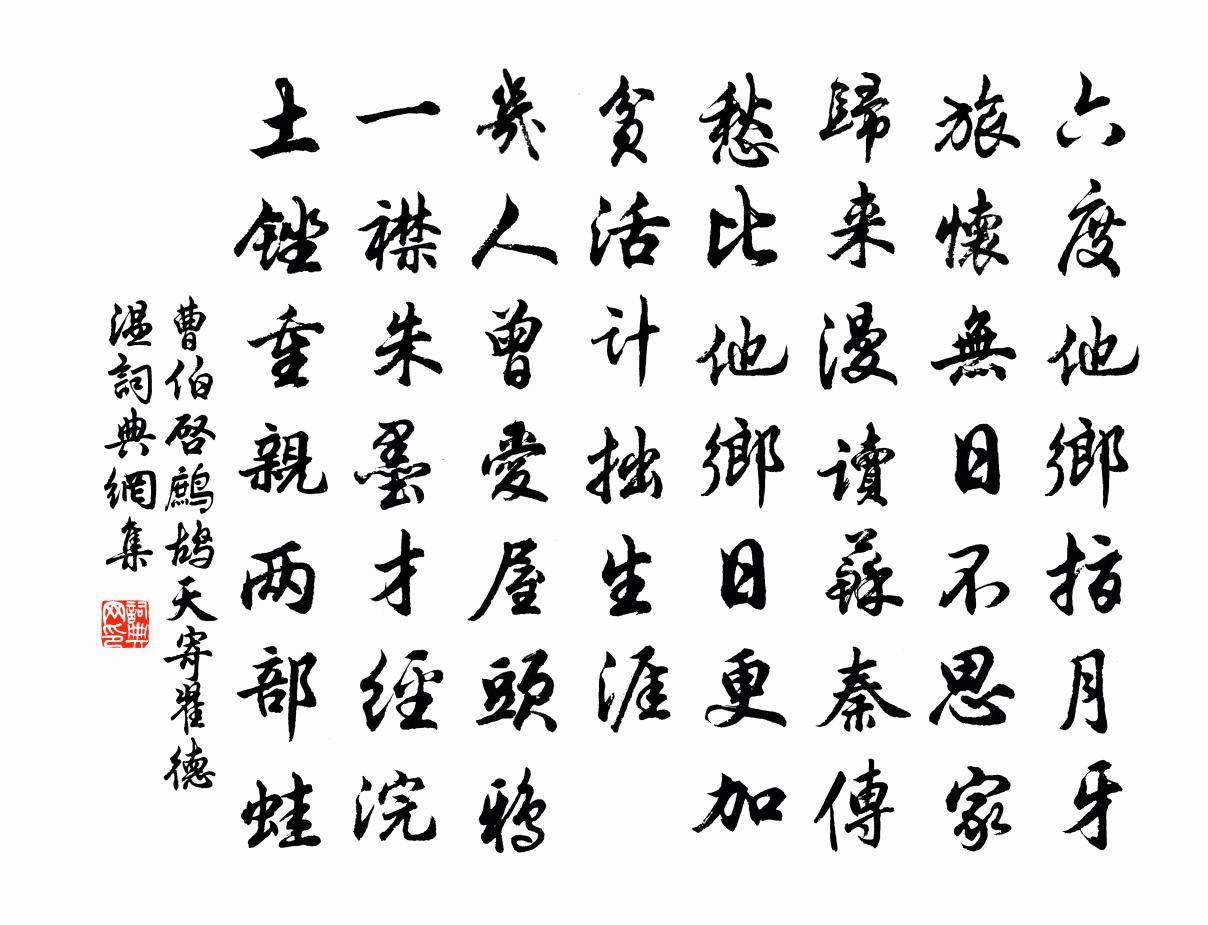 六度他鄉指月牙
旅懷無日不思家
歸来漫讀蘇秦傳
愁比他鄉日更加
貧活计拙生涯
幾人曾愛屋頭鴉
一襟朱墨才經浣
土銼重親两部蛙
曹伯啓鷓鴣天寄翟德
温詞典網集
詞典网印